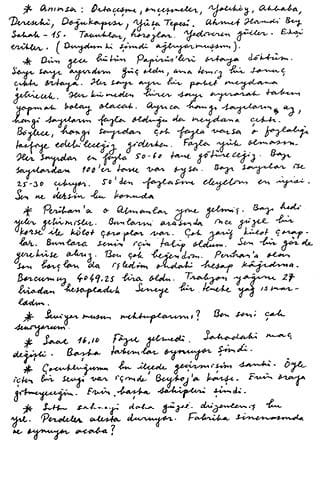 * Anımsa: Ortaçeşme, onçeşmeler, Yalıköy, Akbaba,
Dereseki, Doğukapısı, Yuşa Tepesi. Ahmet Hamdi Bey
Sokak - 15. Tavuklar, horozlar. Yediveren güller. Ekşi
erikler. (Duydum ki şimdi ağlıyormuşsun).
* Dün gece bütün Papirüs'leri ortaya döktüm.
Sayı sayı ayırdım güç oldu, ama temiz bir sonuç
çıktı ortaya. Her sayı ayrı bir paket meydana
getirecek. Her birinden birer sayı ayırarak takım
yapmak kolay olacak. Ayrıca hangi sayıların az,
hangi sayıların fazla olduğu da meydana çıktı.
Böylece, hangi sayıdan çok fazla varsa o fazlalığı
tasfiye edebileceğiz giderken. Fazla yük olmasın.
Her sayıdan en fazla 50-60 tane götüreceğiz. Bazı
sayılardan 100'er tane var oysa. Bazı sayılar ise
25-30 çıkıyor. 50'den fazlasını eleyelim en iyisi.
Sen ne dersin bu konuda
* Perihan'a o Almanlar yine gelmiş. Bazı hedi
yeler getirmişler. Bunların arasında ince güzel bir
korse ile külot çorap var. Çok zarif külot çorap-
lar. Bunları senin için talip oldum. Sen bir gör de
gerekirse alırız. Ben çok beğendim. Perihan'a olan
son borçları da işledim ondaki hesap kâğıdına.
Borcumuz 4049.25 lira oldu. Trabzon yağını 27
liradan hesapladık. Seneye bir teneke yağ ısmar-
ladım.
* Seviyor musun mektuplarımı? Ben seni çok
seviyorum.
* Saat 16,10 Fazıl gelmedi. Sahadaki maç
değişti. Başka takımlar oynuyor şimdi.
* Çocukluğuma bu ilçede geçirmişim sanki. Öyle
içten bir sevgi var içimde Beykoz'a karşı. Evin oraya
gitmeyeceğim. Evin başka sahipleri şimdi.
* daha güzel. düzenlemiş bu
yıl. Perdeler alesta duruyor. Fabrika sinemasında
ne oynuyor acaba?